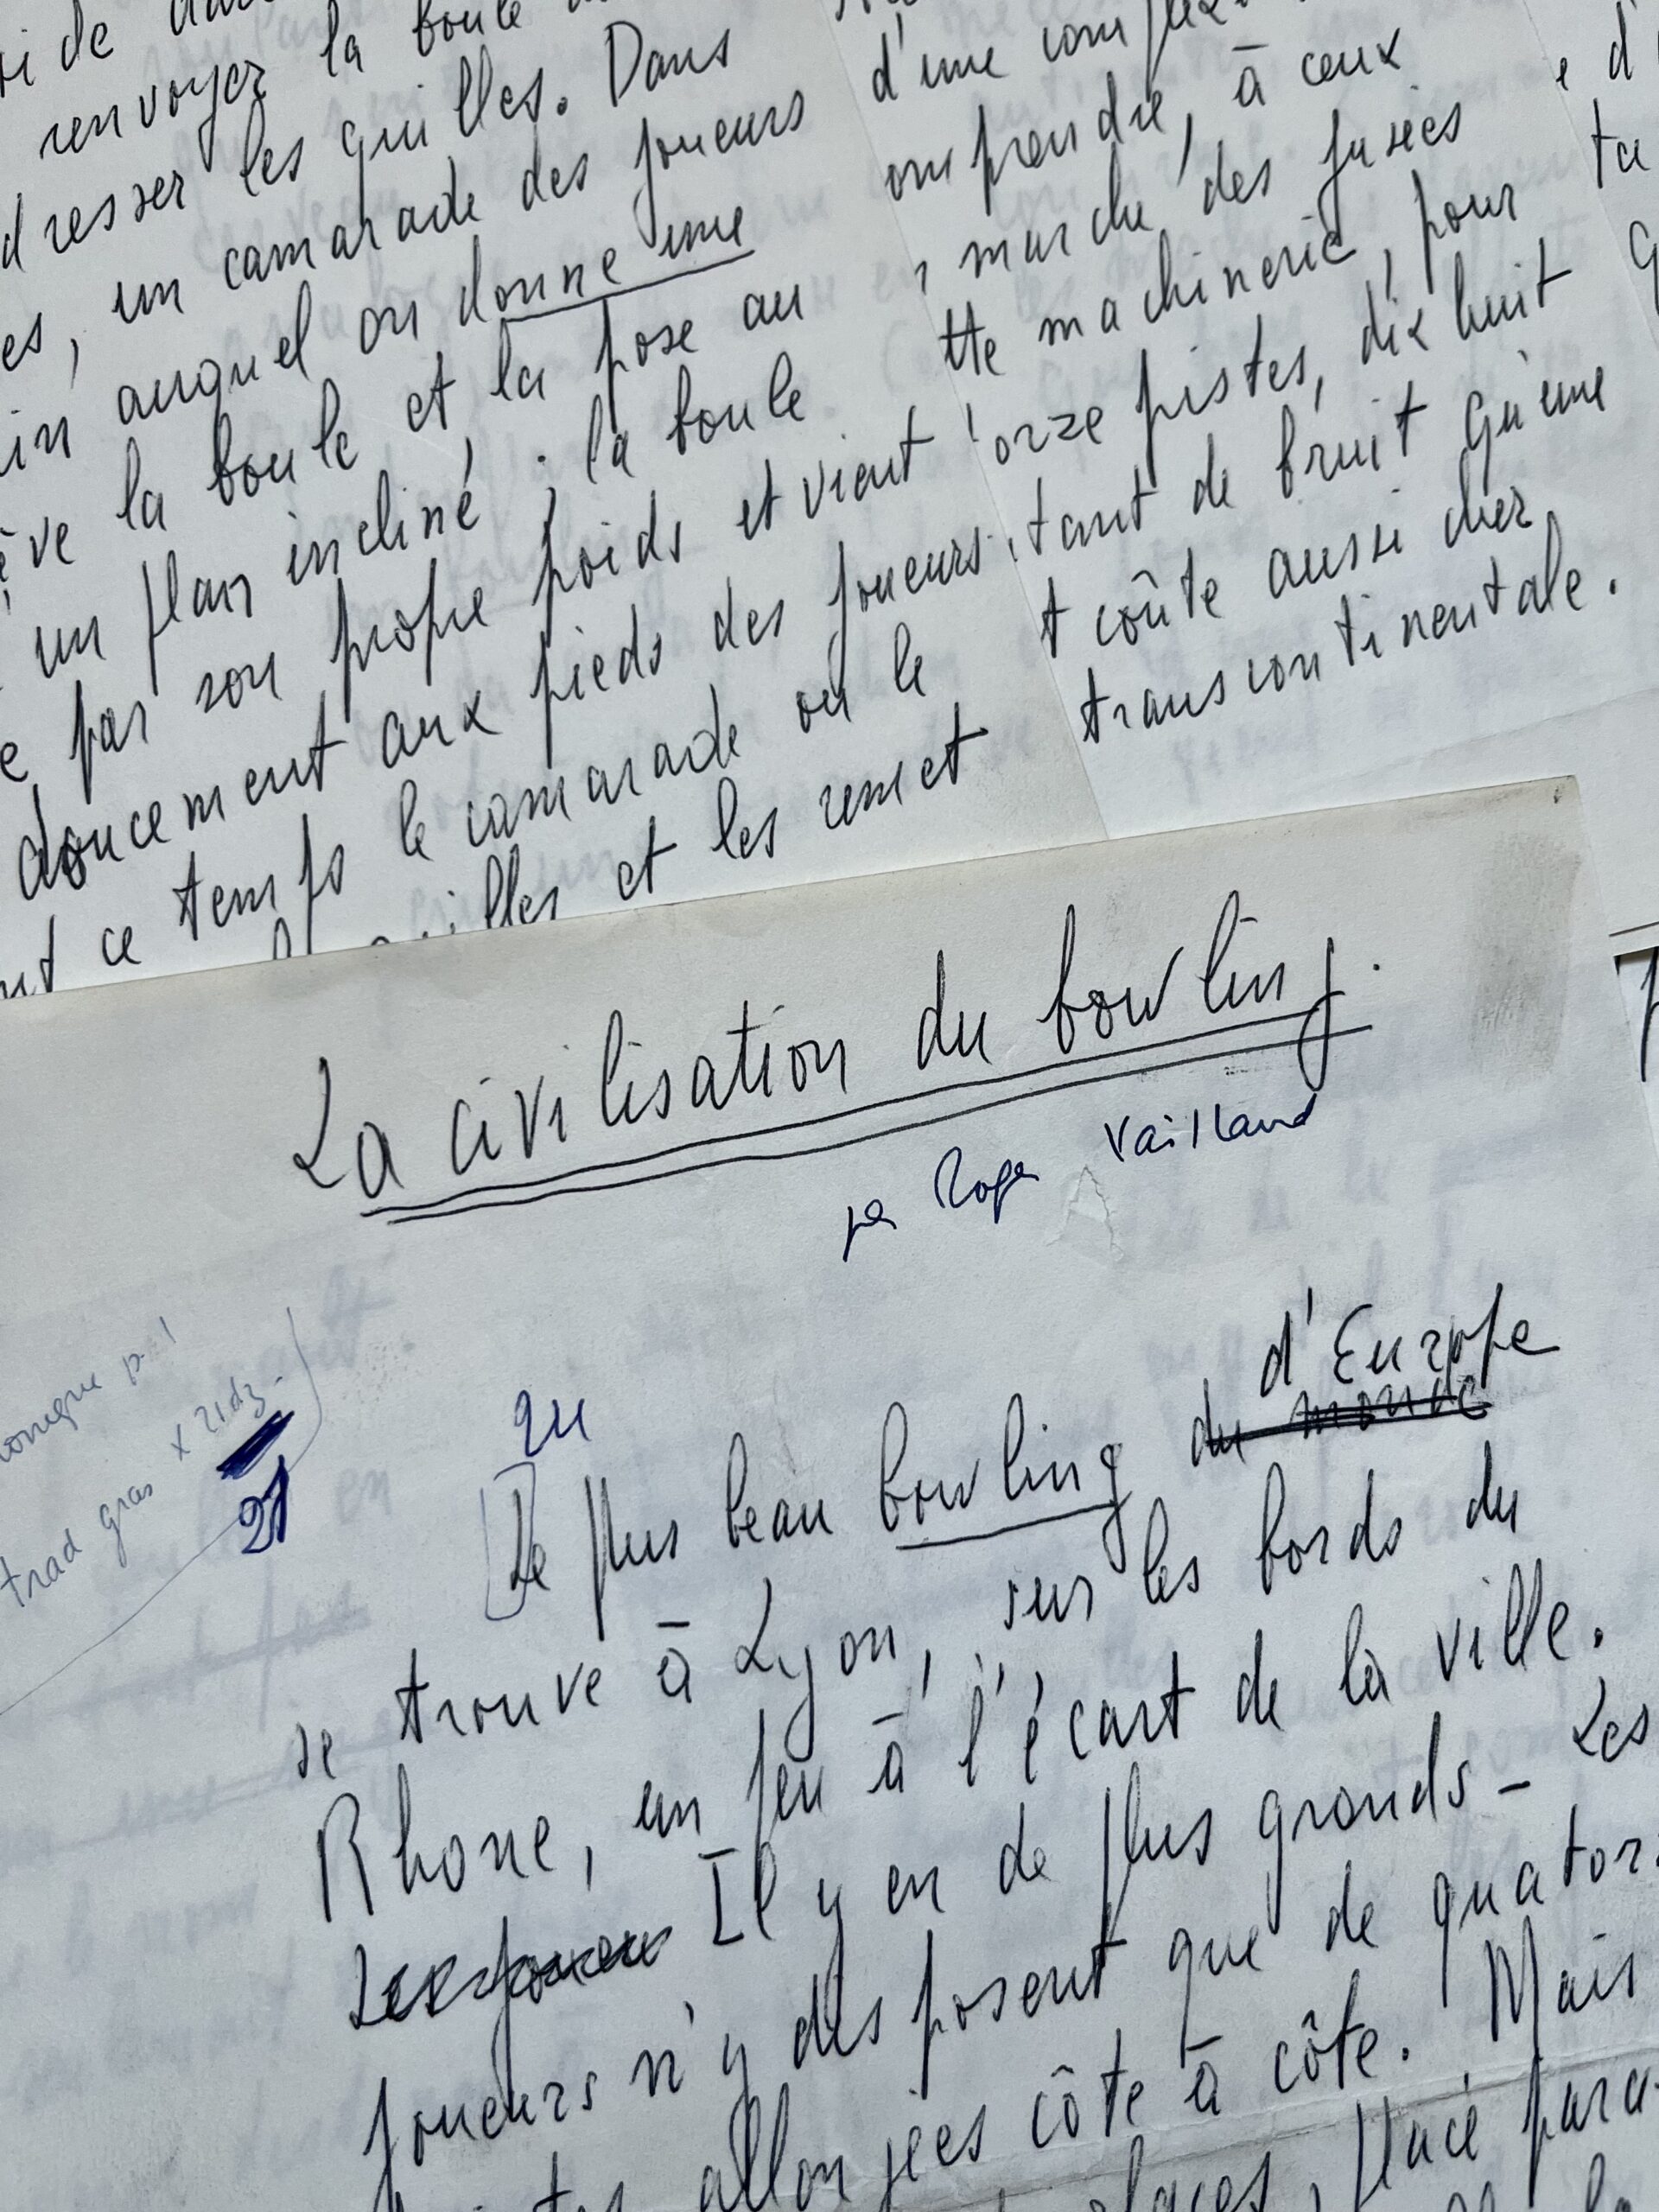 renvoyer la boule
dresser les quilles. Dans
es, un camarade des joueurs
in auquel on donne une
ève la boule et la pose au
un plan incliné ; la boule
e par son propre poids et vient
doucement aux pieds des joueurs.
nt ce temps le camarade ou le
quilles et les remet
d'une complexi
omprendre, à ceux
marche des fusées
tte machinerie, pour
orze pistes, dix huit
tant de bruit qu'une
t coûte aussi cher
transcontinentale.
La civilisation du bowling.
par Roger Vailland
trad gras x
21
Le plus beau bowling du monde d'Europe
se trouve à Lyon, sur les bords du
Rhone, un peu à l'écart de la ville.
Les joueurs Il y en de plus grands - Les
joueurs n'y disposent que de quator
allongées côte à côte. Mais
glaces, placé para-